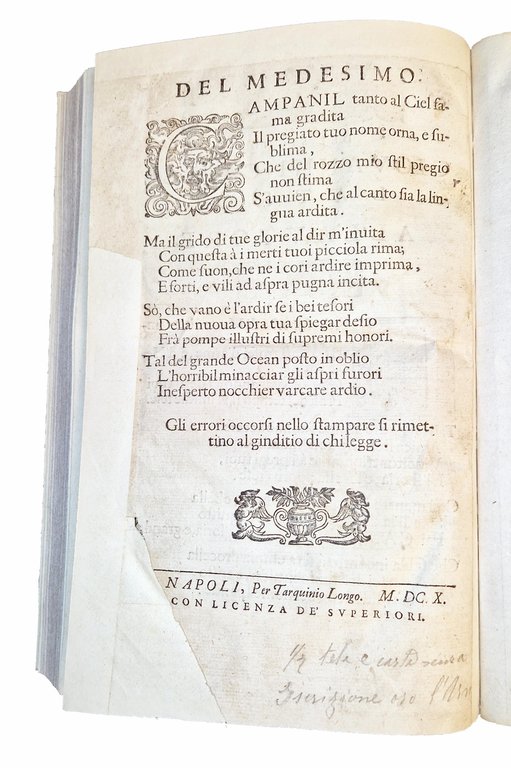 DEL MEDESIMO.
CAMPANIL tanto al Ciel fa-
ma gradita
Il pregiato tuo nome orna, e su-
blima,
Che del rozzo mio stil pregio
non stima
S'auuien, che al canto sia la lin-
gua ardita.
Ma il grido di tue glorie al dir m'inuita
Con questa à i merti tuoi picciola rima;
Come suon, che ne i cori ardire imprima,
E forti, e vili ad aspra pugna incita.
Sò, che vano è l'ardir se i bei tesori
Della nuoua opra tua spiegar desio
Frà pompe illustri di supremi honori.
Tal del grande Ocean posto in oblio
L'horribil minacciar gli aspri furori
Inesperto nocchier varcare ardio.
Gli errori occorsi nello stampare si rimet-
tino al ginditio di chi legge.
NAPOLI, Per Tarquinio Longo. M. DC. X.
CON LICENZA DE' SVPERIORI.
1/2 tela e carta senza
Iscrizione oro